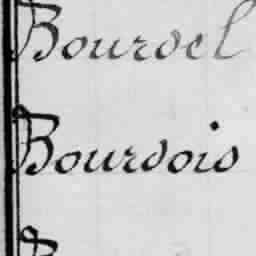 Bourdel
Bourdois